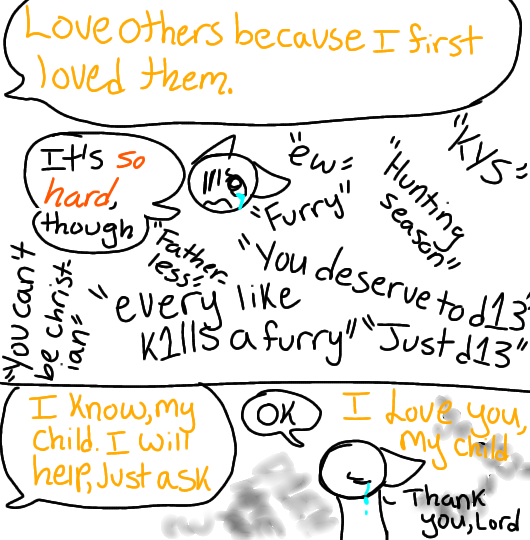 Love others because I first
loved them.
It's so
hard,
though
"ew"
"Furry"
"KYS"
"Hunting
season"
"Father-
less"
"You deserve to d13"
"You can't
be christ
ian"
"every like
k1lls a furry"
"Just d13"
I know, my
child. I will
help, Just ask
OK
I Love you,
my child
- Thank
you, Lord